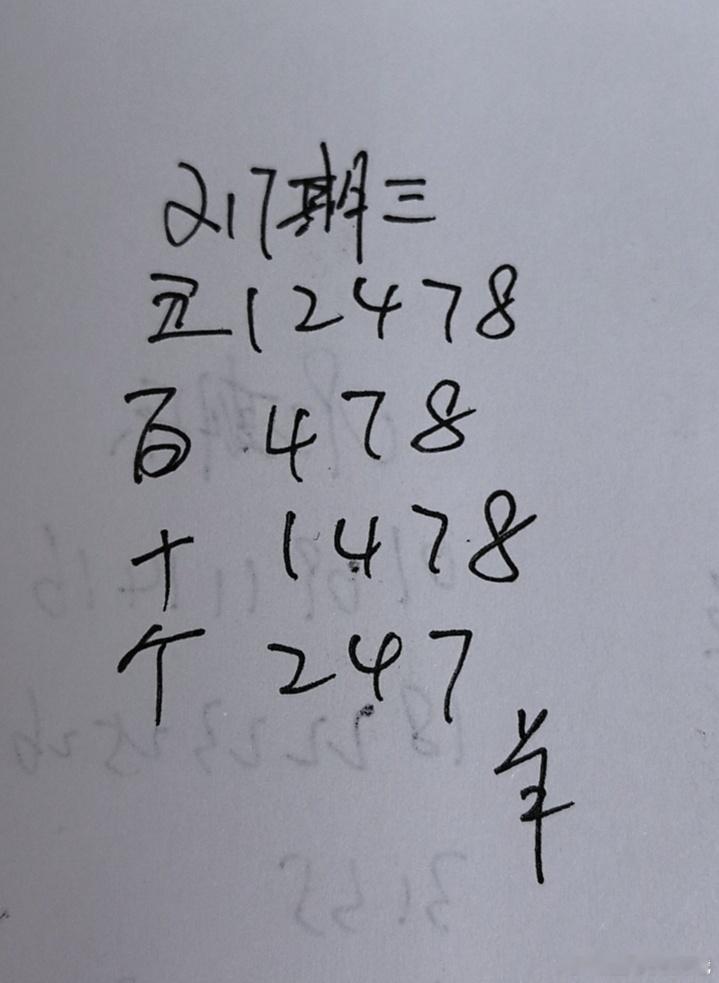 217期三
五12478
百 478
十 1478
个 247
单